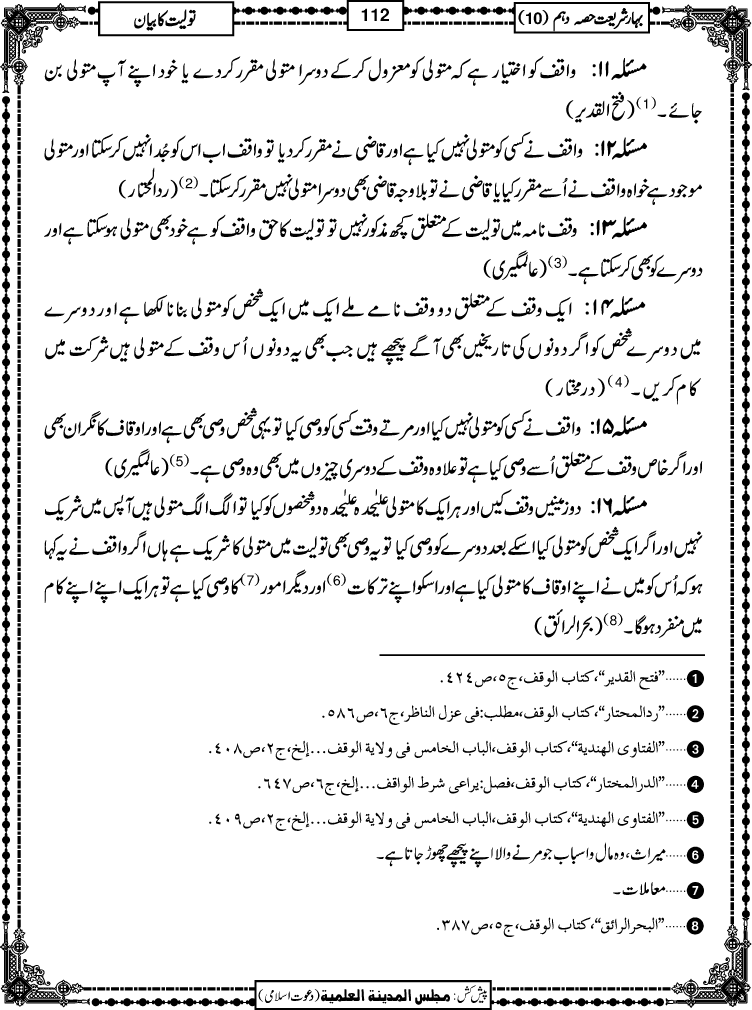 بہارِشریعت حصہ دہم (10)
112
تولیت کا بیان
مسئلہ ۱۱: واقف کو اختیار ہے کہ متولی کو معزول کرکے دوسرا متولی مقرر کردے یا خود اپنے آپ متولی بن
جائے۔(1) (فتح القدیر)
مسئلہ ۱۲: واقف نے کسی کو متولی نہیں کیا ہے اور قاضی نے مقرر کردیا تو واقف اب اس کو جُدا نہیں کرسکتا اور متولی
موجود ہے خواہ واقف نے اُسے مقرر کیا یا قاضی نے تو بلاوجہ قاضی بھی دوسرا متولی نہیں مقرر کرسکتا۔(2) (ردالمحتار)
مسئلہ ۱۳: وقف نامہ میں تولیت کے متعلق کچھ مذکور نہیں تو تولیت کا حق واقف کو ہے خود بھی متولی ہوسکتا ہے اور
دوسرے کو بھی کرسکتا ہے۔(3) (عالمگیری)
مسئلہ ۱۴: ایک وقف کے متعلق دو وقف نامے ملے ایک میں ایک شخص کو متولی بنانا لکھا ہے اور دوسرے
میں دوسرے شخص کو اگر دونوں کی تاریخیں بھی آگے پیچھے ہیں جب بھی یہ دونوں اُس وقف کے متولی ہیں شرکت میں
کام کریں۔(4) (درمختار)
مسئلہ ۱۵: واقف نے کسی کو متولی نہیں کیا اور مرتے وقت کسی کو وصی کیا تو یہی شخص وصی بھی ہے اور اوقاف کا نگران بھی
اور اگر خاص وقف کے متعلق اُسے وصی کیا ہے تو علاوہ وقف کے دوسری چیزوں میں بھی وہ وصی ہے۔(5) (عالمگیری)
مسئلہ ۱۶: دو زمینیں وقف کیں اور ہر ایک کا متولی علیٰحدہ علیٰحدہ دو شخصوں کو کیا تو الگ الگ متولی ہیں آپس میں شریک
نہیں اور اگر ایک شخص کو متولی کیا اسکے بعد دوسرے کو وصی کیا تو یہ وصی بھی تولیت میں متولی کا شریک ہے ہاں اگر واقف نے یہ کہا
ہو کہ اُس کو میں نے اپنے اوقاف کا متولی کیا ہے اور اسکو اپنے ترکات(6) اور دیگر امور(7) کا وصی کیا ہے تو ہر ایک اپنے اپنے کام
میں منفرد ہوگا۔(8) (بحرالرائق)
1......”فتح القدیر“،کتاب الوقف،ج۵،ص٤٢٤.
2......”ردالمحتار“،کتاب الوقف،مطلب:فی عزل الناظر،ج٦،ص٥٨٦.
3......”الفتاوی الھندیة“،کتاب الوقف،الباب الخامس فی ولایة الوقف...إلخ،ج٢،ص٤٠٨.
4......”الدرالمختار“،کتاب الوقف،فصل:یراعی شرط الواقف...إلخ،ج٦،ص٦٤٧.
5......”الفتاوی الھندیة“،کتاب الوقف،الباب الخامس فی ولایة الوقف...إلخ،ج٢،ص٤٠٩.
6......میراث،وہ مال و اسباب جو مرنے والا اپنے پیچھے چھوڑ جاتا ہے۔
7......معاملات۔
8......”البحرالرائق“،کتاب الوقف،ج٥،ص٣٨٧.
پیش کش: مجلس المدینۃ العلمیۃ (دعوتِ اسلامی)